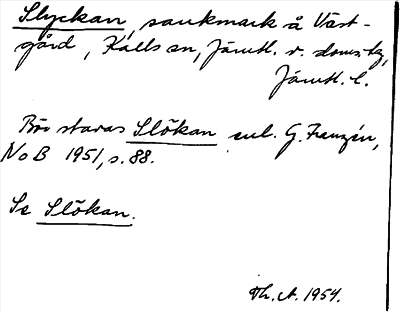 Slyckan, sankmark å Väst-
gård, Kalls sn, Jämtl. v. doms:ga,
Jämtl. l.
Bör staras Slökan enl. G. Franzén,
NoB 1951, s. 88.
Se Slökan.
Th. A. 1954.